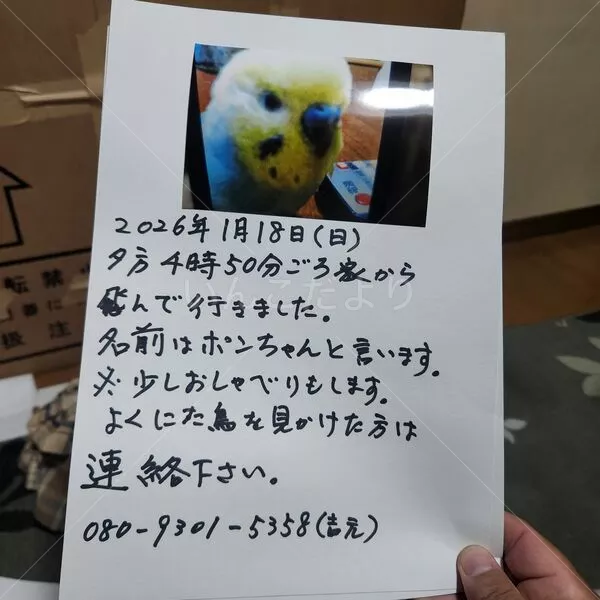 2026年1月18日(日)
夕方4時50分ごろ家から
飛んで行きました。
名前はポンちゃんと言います。
※少しおしゃべりもします。
よくにた鳥を見かけた方は
連絡下さい。
080-9301-5358(吉元)
いんこだより
転禁
番に
扱注